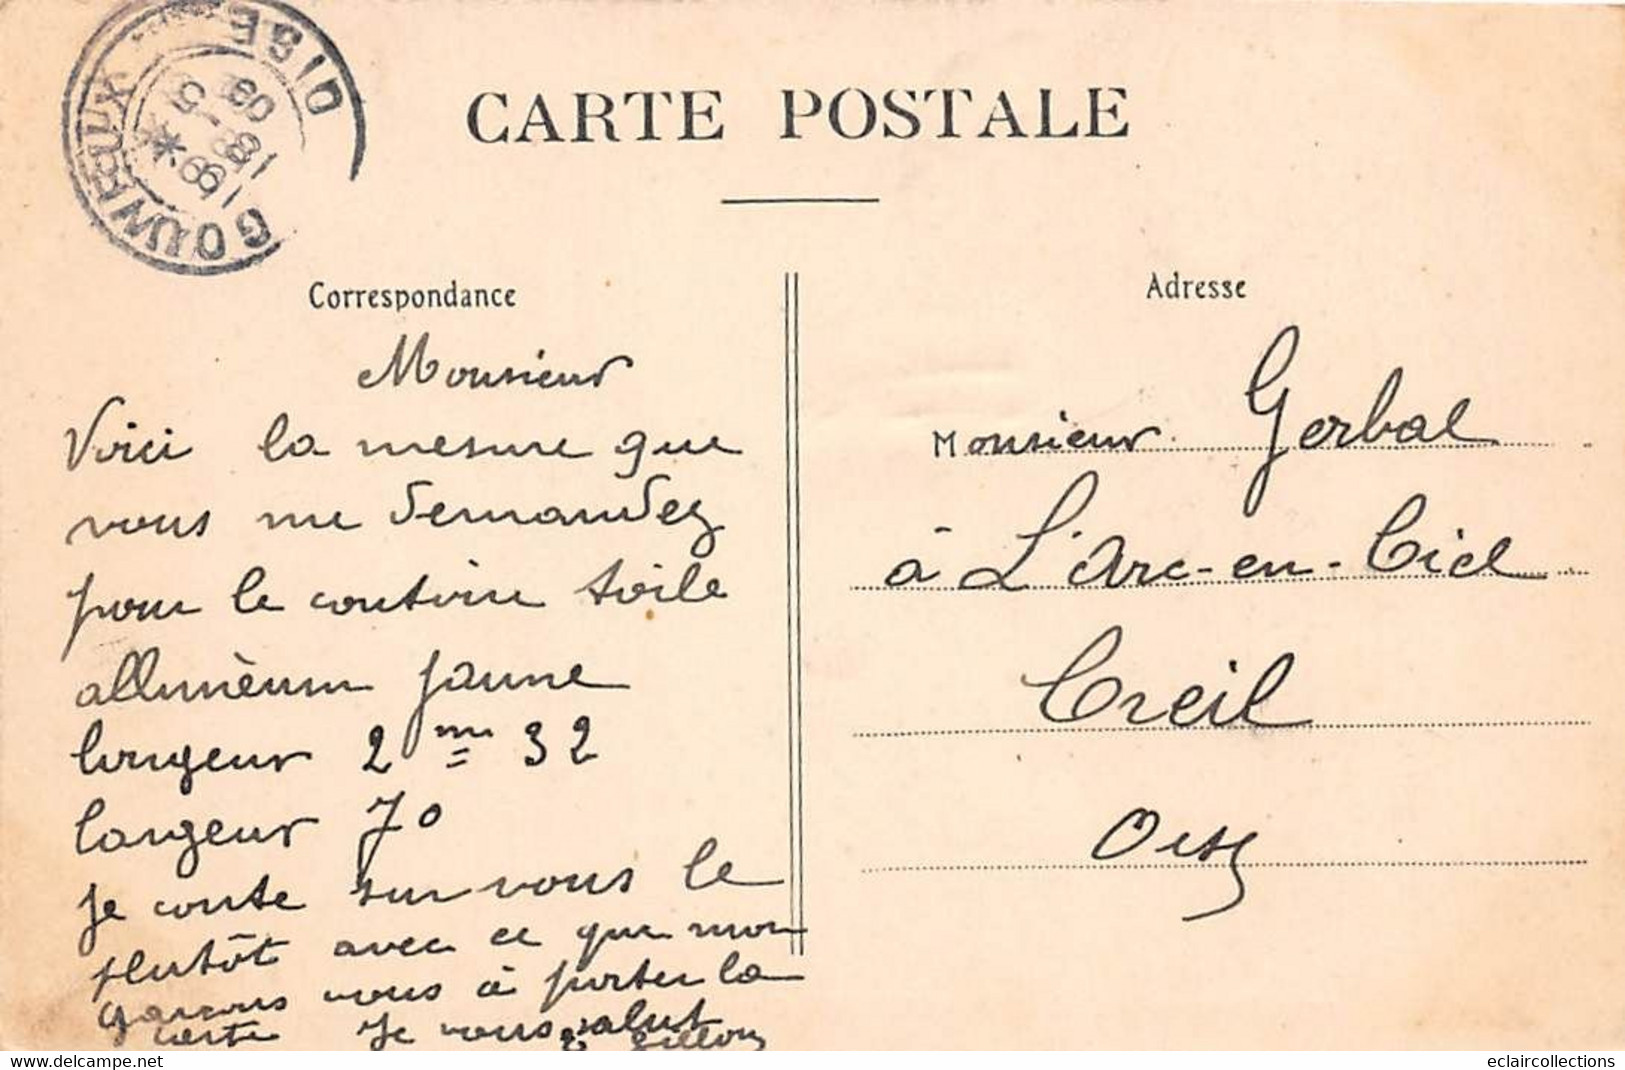 GOUVIEUX OISE
18 -5
09
CARTE POSTALE
Correspondance
Monsieur
Voici la mesure que
vous me demandez
pour le coutvin toile
allumèum jaune
longeur 2 m 32
largeur 70
je conte sur vous le
plutôt avec ce que mon
garcons vous à porter la
carte Je vous salut
Gillon
Adresse
Monsieur Gerbal
à L'Arc-en-Ciel
Creil
Oise
eclaircollections